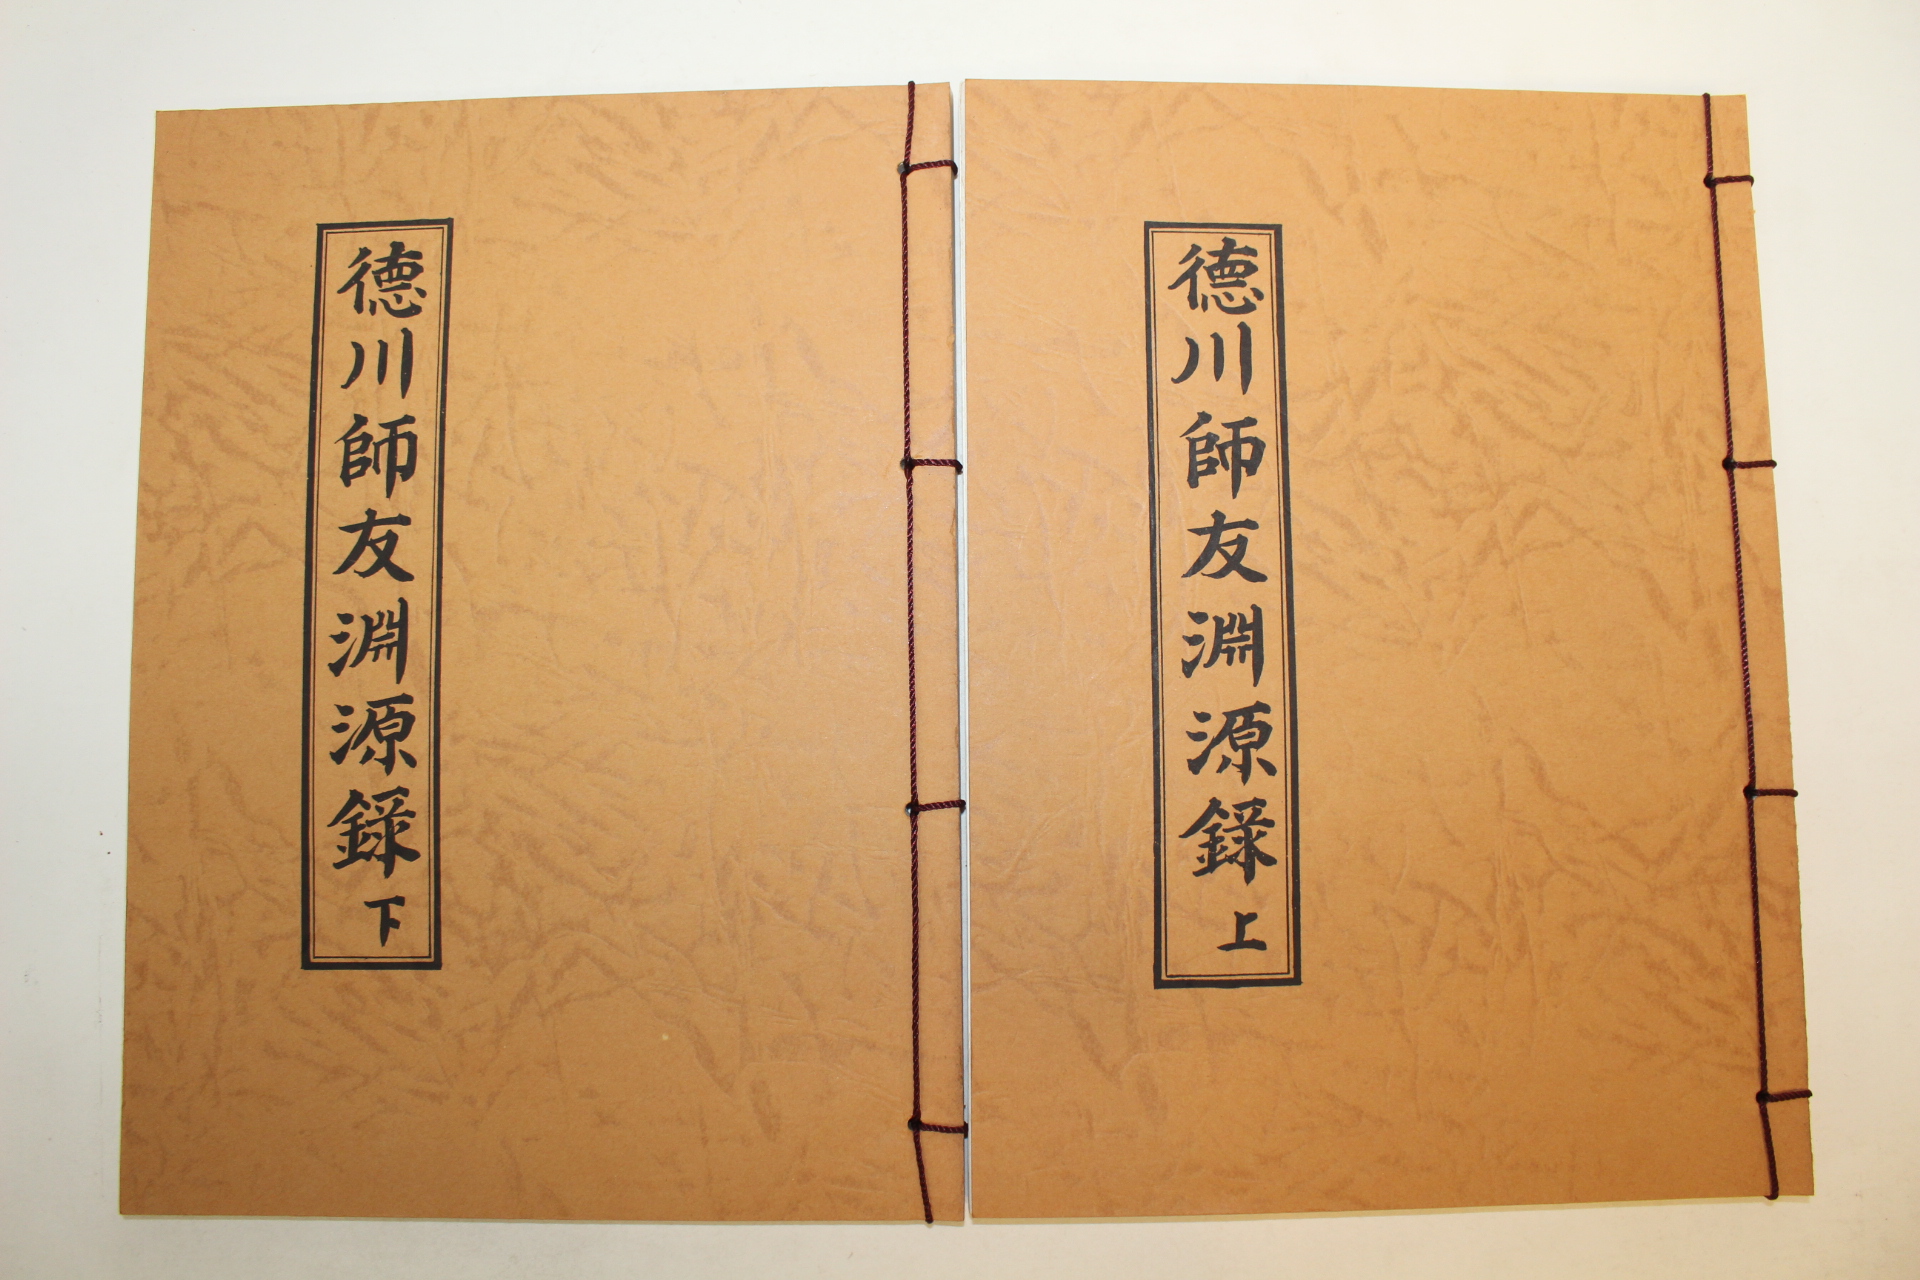 徳川師友淵源錄上
徳川師友淵源錄下